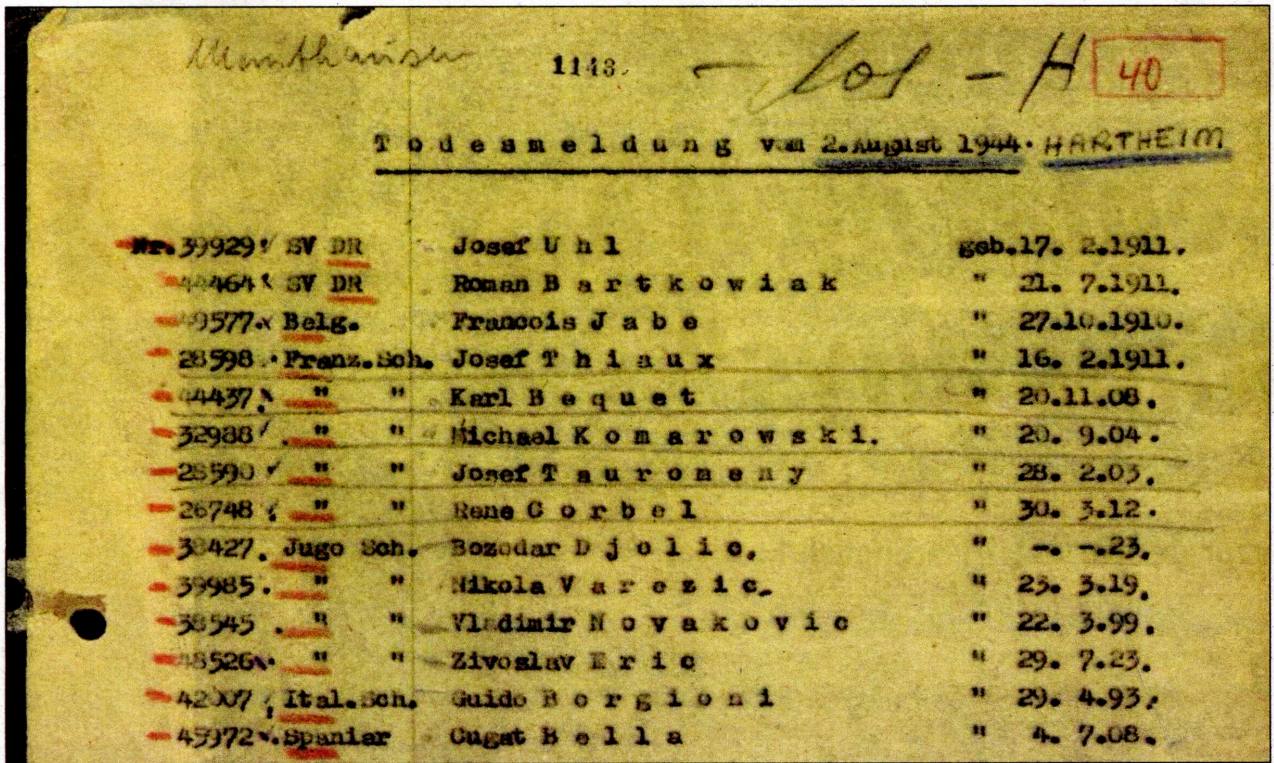 Mauthausen 1143. 40
Todesmeldung vom 2.August 1944. HARTHEIM
Nr.39929 SV DR Josef Uhl geb.17. 2.1911.
44464 SV DR Roman Bartkowiak " 21. 7.1911.
49577 Belg. Francois Jabe " 27.10.1910.
28598 Franz.Sch. Josef Thiaux " 16. 2.1911.
44437 " " Karl Bequet " 20.11.08.
32988 " " Michael Komarowski. " 20. 9.04.
28590 " " Josef Tauromeny " 28. 2.03.
26748 " " Rene Corbel " 30. 3.12.
38427. Jugo Sch. Bozodar Djelic. " -. -.23.
39985. " " Nikola Varezic. " 23. 3.19.
38545 . " " Vladimir Novakovic " 22. 3.99.
48526 " " Zivoslav Eric " 29. 7.23.
42007 Ital.Sch. Guido Borgioni " 29. 4.93.
45972 Spanier Cugat Bella " 4. 7.08.